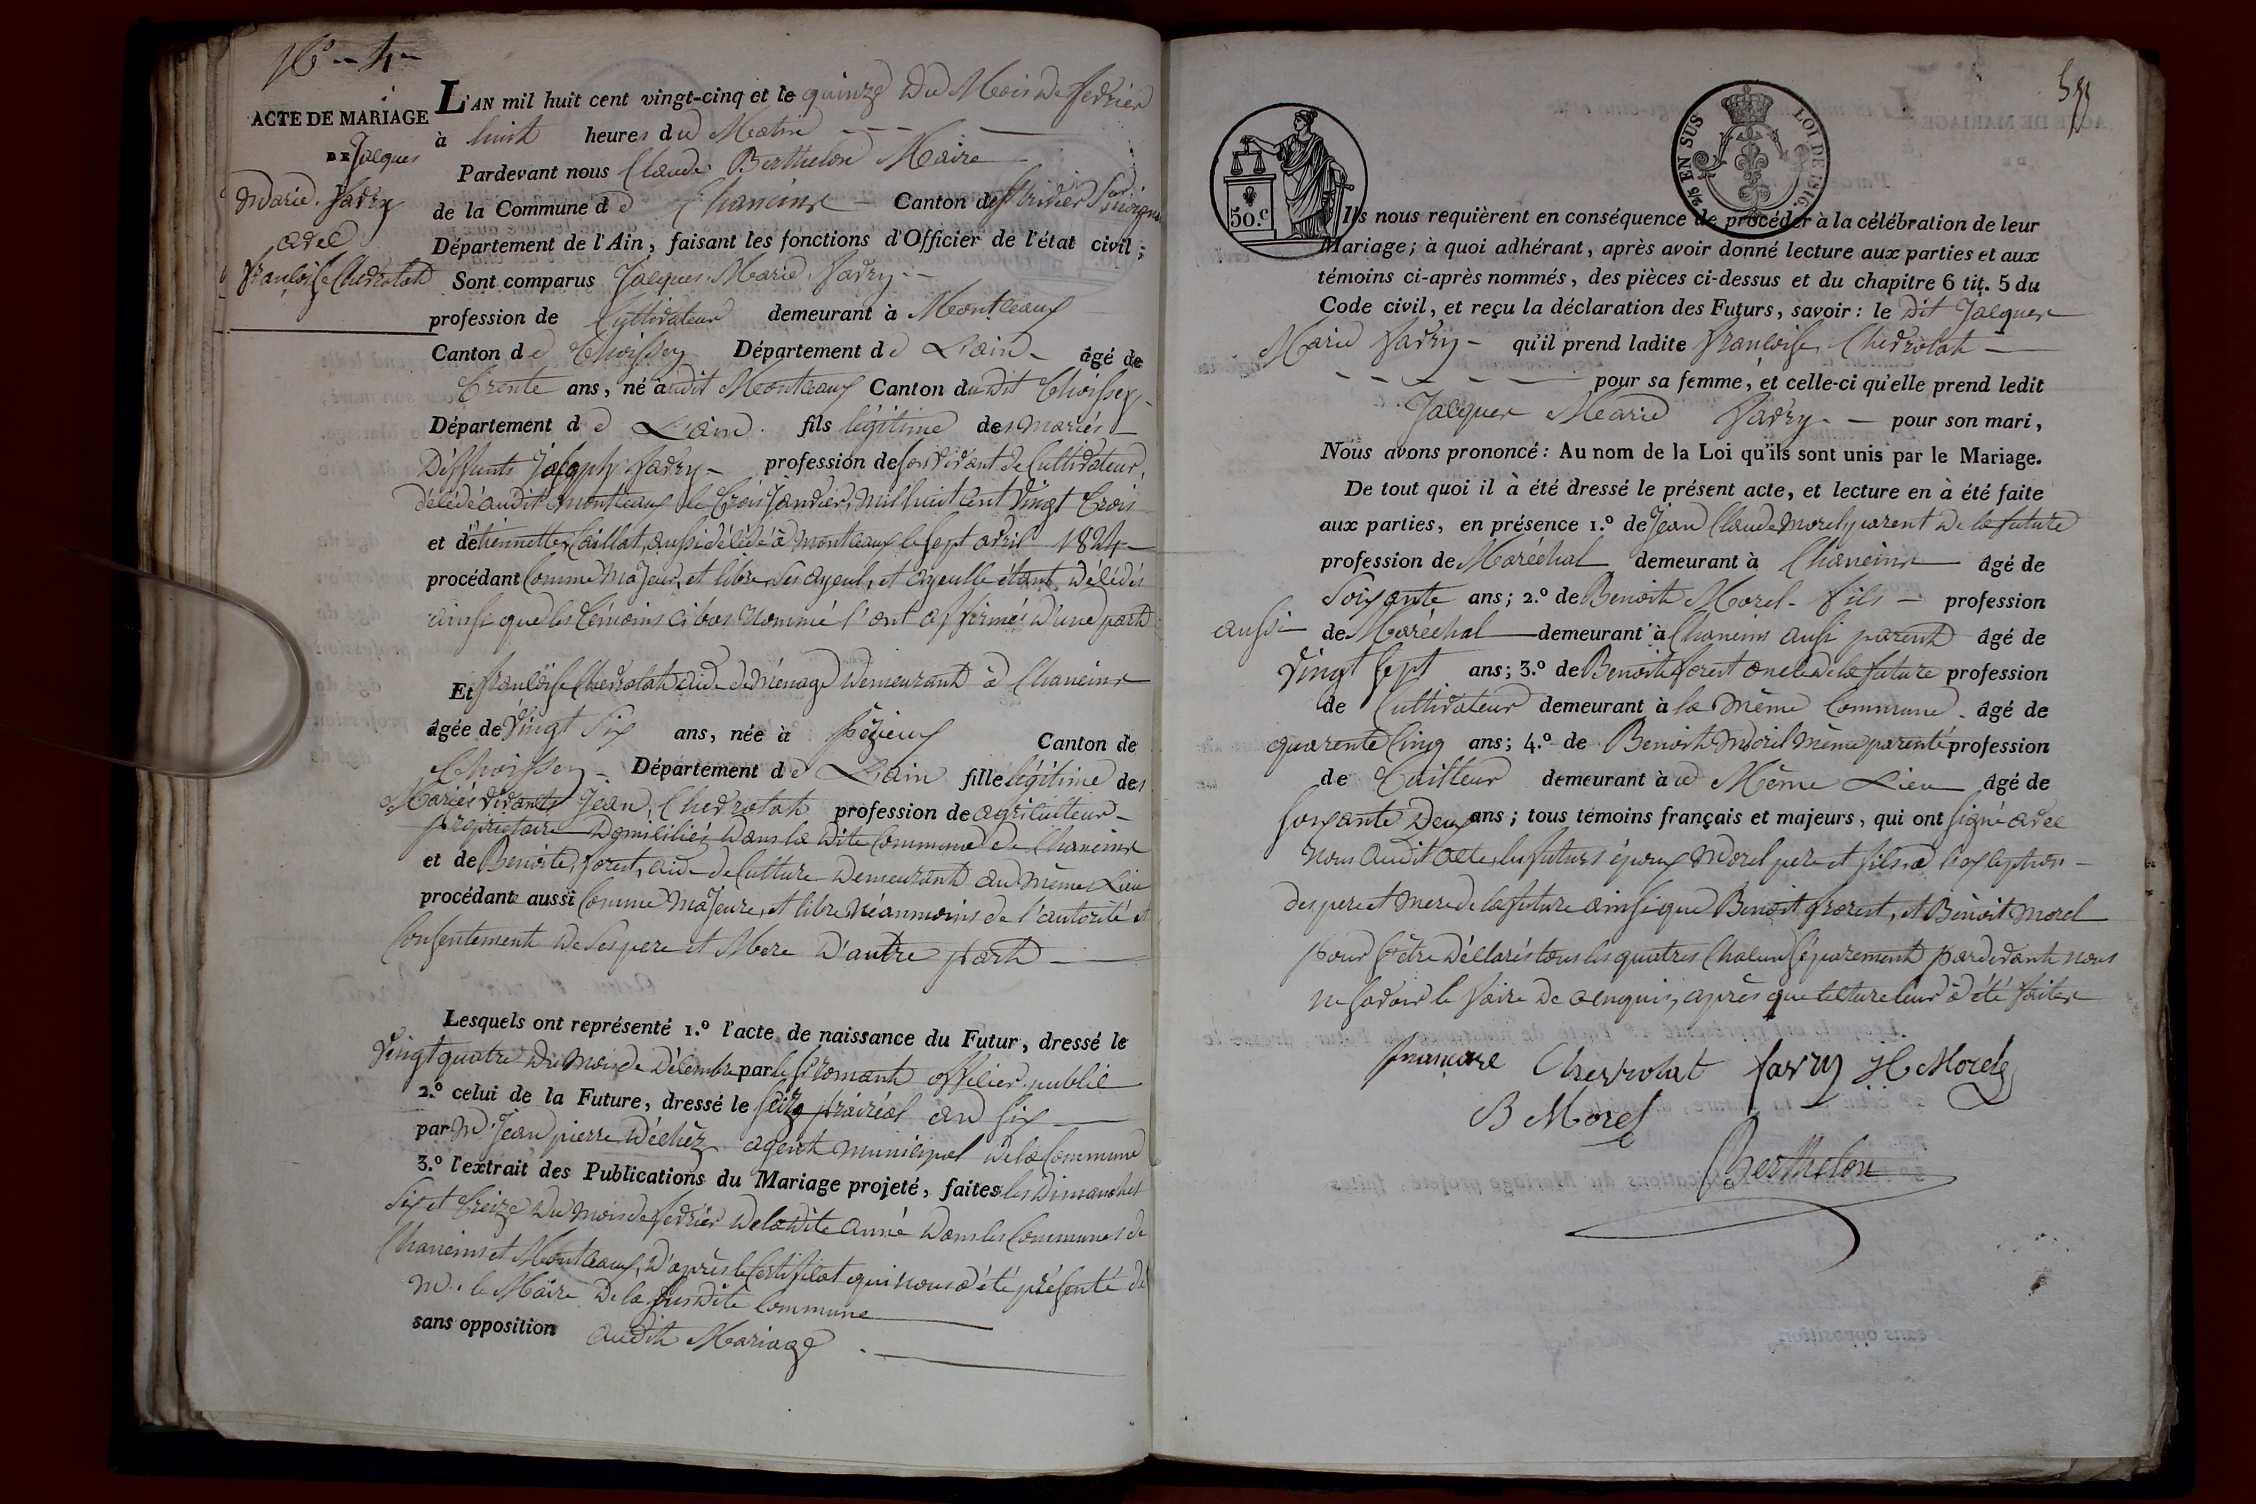 N.o 4
ACTE DE MARIAGE
DE Jacques
Marie Favry
avec
Françoise Chevrolat
L'AN mil huit cent vingt-cinq et le quinze du Mois de fevrier
à huit heures du Matin
Pardevant nous Claude Berthelon Maire
de la Commune de Chaneins Canton de
Département de l'Ain, faisant les fonctions d'Officier de l'état civil;
Sont comparus Jacques Marie Favry
profession de Cultivateur demeurant à Montceaux
Canton de Thoissey Département de L'ain âgé de
trente ans, né audit Montceaux Canton dudit Thoissey
Département de L'ain fils légitime des mariés
Deffunts Joseph Favry profession de son vivant de Cultivateur,
décédé audit montceaux le trois Janvier, mil huit cent vingt trois
et d'étiennette Caillat, aussi décédé à montceaux le sept avril 1824
procédant Comme Majeur, et libre, ses ayeul, et ayeulle étant Décédés
ainsi que les témoins ci bas nommé l'ont affirmés d'une part
Et françoise Chevrolat aide de ménage demeurant à Chaneins
âgée de vingt six ans, née à Pézieux Canton de
Thoissey Département de L'ain fille légitime des
Mariés vivants Jean Chevrolat profession de agriculteur
propriétaire Domiciliés dans la dite Commune de Chaneins
et de Benoite, forest, aide de Culture demeurant au même Lieu
procédante aussi Comme Majeure, et libre néanmoins de l'autorité et
Consentement de ses pere et Mere d'autre part
Lesquels ont représenté 1.º l'acte de naissance du Futur, dressé le
vingt quatre du mois de Décembre par le officier public
2.º celui de la Future, dressé le seize prairéal an six
par Mr Jean pierre agent municipal de la Commune
3.º l'extrait des Publications du Mariage projeté, faites les Dimanches
six et treize du mois de fevrier de la dite année dans les Communes de
Chaneins et Montceaux, d'après le Certificat qui nous a été présenté de
Mr le Maire de la susdite Commune
sans opposition audit Mariage
50.c
2/10 EN SUS LOI DE 1816.
Ils nous requièrent en conséquence de procéder à la célébration de leur
Mariage; à quoi adhérant, après avoir donné lecture aux parties et aux
témoins ci-après nommés, des pièces ci-dessus et du chapitre 6 tit. 5 du
Code civil, et reçu la déclaration des Futurs, savoir: le dit Jacques
Marie Favry qu'il prend ladite Françoise Chevrolat
pour sa femme, et celle-ci qu'elle prend ledit
Jacques Marie Favry pour son mari,
Nous avons prononcé: Au nom de la Loi qu'ils sont unis par le Mariage.
De tout quoi il à été dressé le présent acte, et lecture en à été faite
aux parties, en présence 1.º de Jean Claude Morel parent de la future
profession de Maréchal demeurant à Chaneins âgé de
Soixante ans; 2.º de Benoit Morel fils profession
aussi de Maréchal demeurant à Chaneins aussi parent âgé de
vingt sept ans; 3.º de Benoit forest oncle de la future profession
de Cultivateur demeurant à la même Commune âgé de
quarente Cinq ans; 4.º de Benoit Morel même parenté profession
de Tailleur demeurant à Même Lieu âgé de
soixante Deux ans; tous témoins français et majeurs, qui ont signé avec
nous audit acte, les futurs époux Morel pere et fils à l'exception
des pere et mere de la future ainsi que Benoit forest, et Benoit Morel
pour s'être déclarés tous les quatres Chacun séparement pardevant nous
ne savoir le faire de ce enquis, après que lecture leur a été faites
françoise Chevrolat favry Morel
B Morel
Berthelon